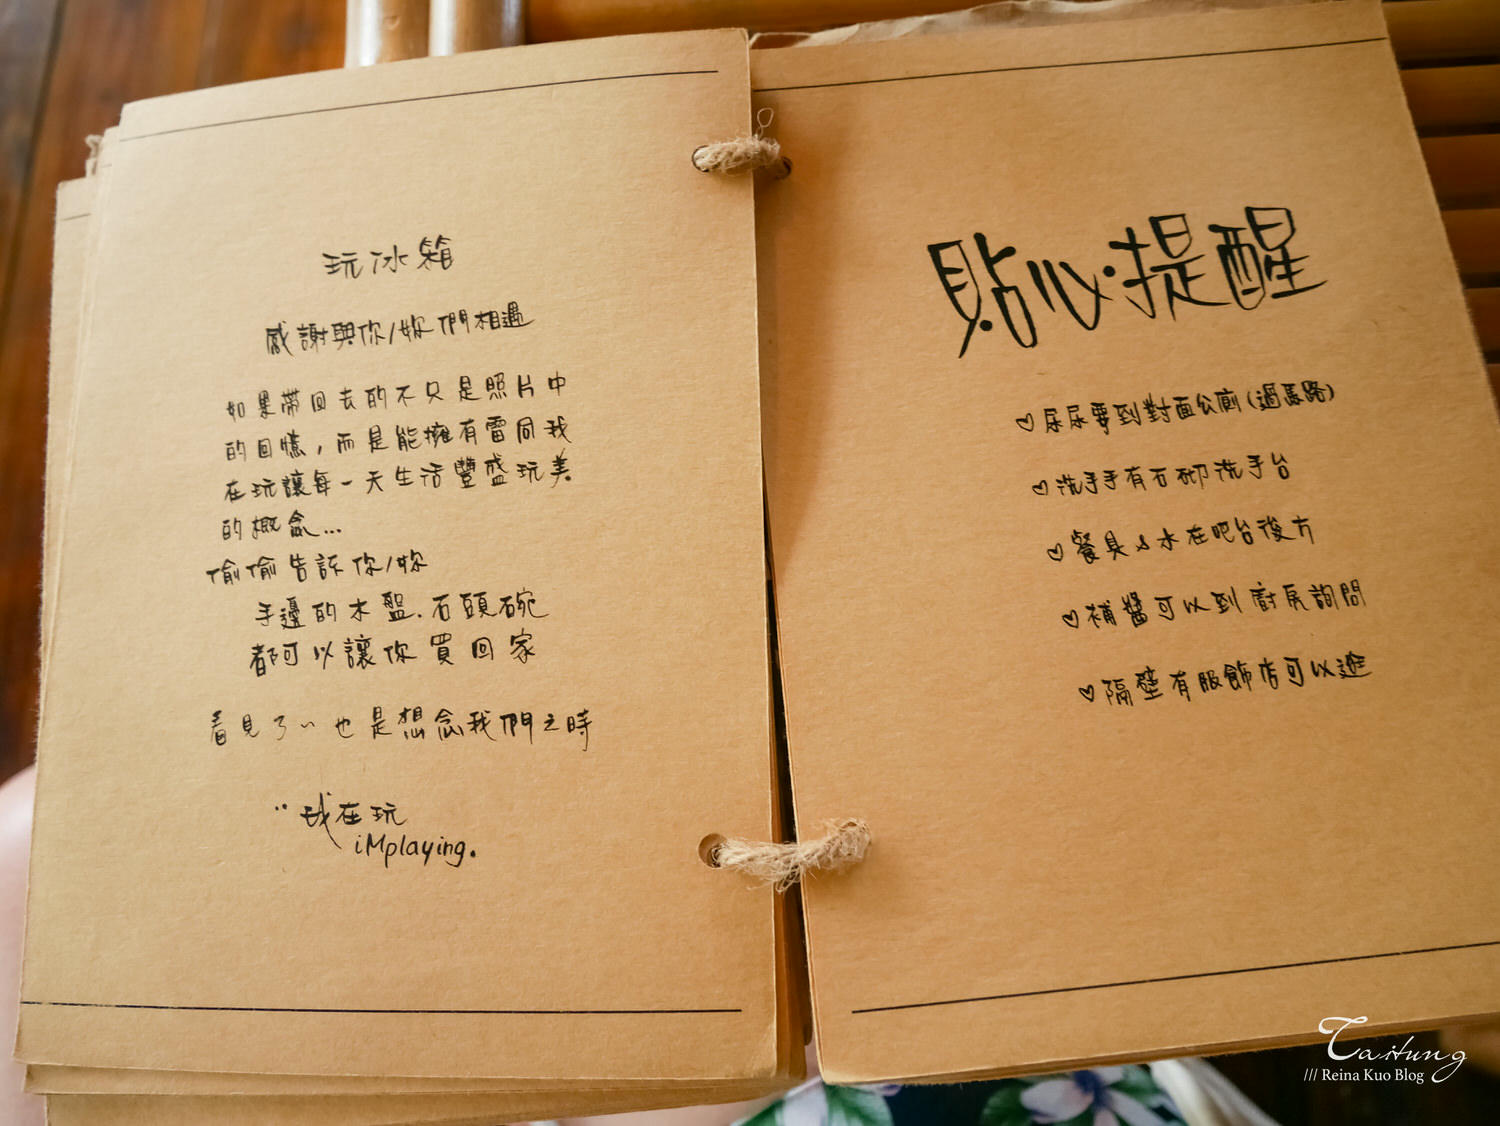 玩冰箱
感謝與你/妳們相遇
如果帶回去的不只是照片中
的回憶,而是能擁有雷同我
在玩讓每一天生活豐盛玩美
的概念...
偷偷告訴你/妳
手邊的木盤.石頭碗
都可以讓你買回家
看見了~也是想念我們之時
¨我在玩
iMplaying.
貼心提醒
♡尿尿要到對面公廁(過馬路)
♡洗手手有石砌洗手台
♡餐具&水在吧台後方
♡補醬可以到廚房詢問
♡隔壁有服飾店可以逛
Taitung
/// Reina Kuo Blog